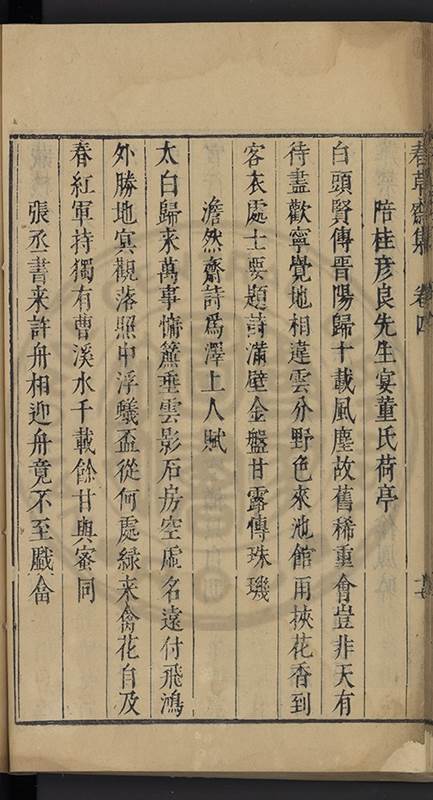 春草齋集 卷四
陪桂彥良先生宴董氏荷亭
白頭賢傳晋陽歸十載風塵故舊稀重會豈非天有
待盡歡寧覺地相違雲分野色來池館用挾花香到
客衣處士要題詩滿壁金盤甘露傳珠璣
澹然齋詩爲澤上人賦
太白歸来萬事慵簾垂雲影石房空虛名遠付飛鴻
外勝地寘觀落照中浮蟻盃從何處綠来禽花自及
春紅軍持獨有曹溪水千載餘甘與蜜同
張丞書来許舟相迎舟竟不至戲畣